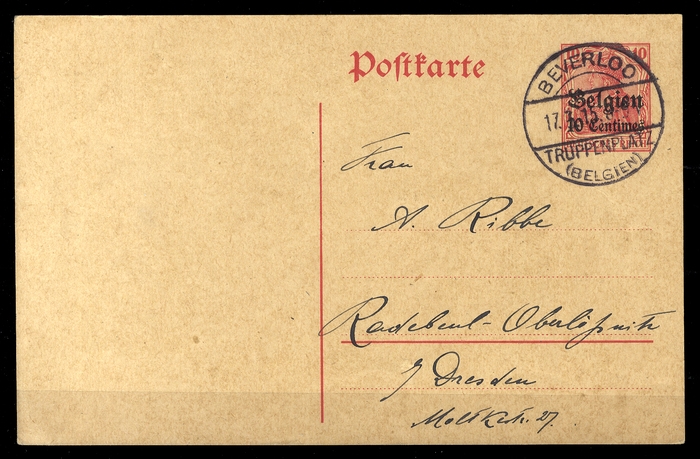 Postkarte
10 10
BEVERLOO
Belgien
10 Centimes
TRUPPENPLATZ
(BELGIEN)
Frau
A. Ribbe
Radebeul-Oberlößnitz
b/ Dresden
Moltkestr. 27.